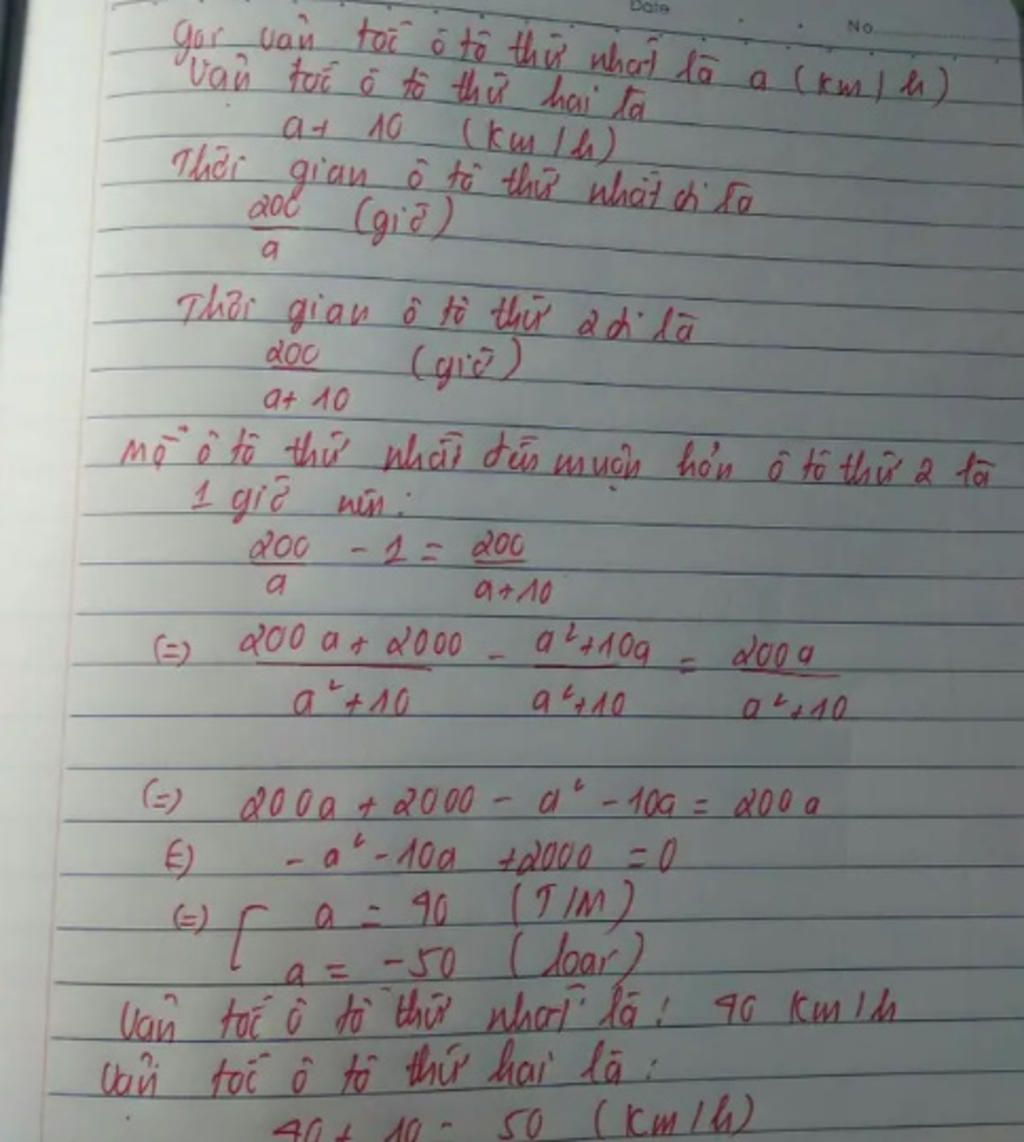 Date No
Gọi vận tốc ô tô thứ nhất là a (km/h)
Vận tốc ô tô thứ hai là
a + 10 (km/h)
Thời gian ô tô thứ nhất đi là
200/a (giờ)
Thời gian ô tô thứ 2 đi là
200/(a+10) (giờ)
Mà ô tô thứ nhất đến muộn hơn ô tô thứ 2 là
1 giờ nên:
200/a - 1 = 200/(a+10)
(=) (200a + 2000)/(a²+10) - (a²+10a)/(a²+10) = 200a/(a²+10)
(=) 200a + 2000 - a² - 10a = 200a
(=) - a² - 10a + 2000 = 0
(=) [ a = 40 (T/M)
a = -50 (loại)
Vận tốc ô tô thứ nhất là: 40 km/h
Vận tốc ô tô thứ hai là:
40 + 10 = 50 (km/h)